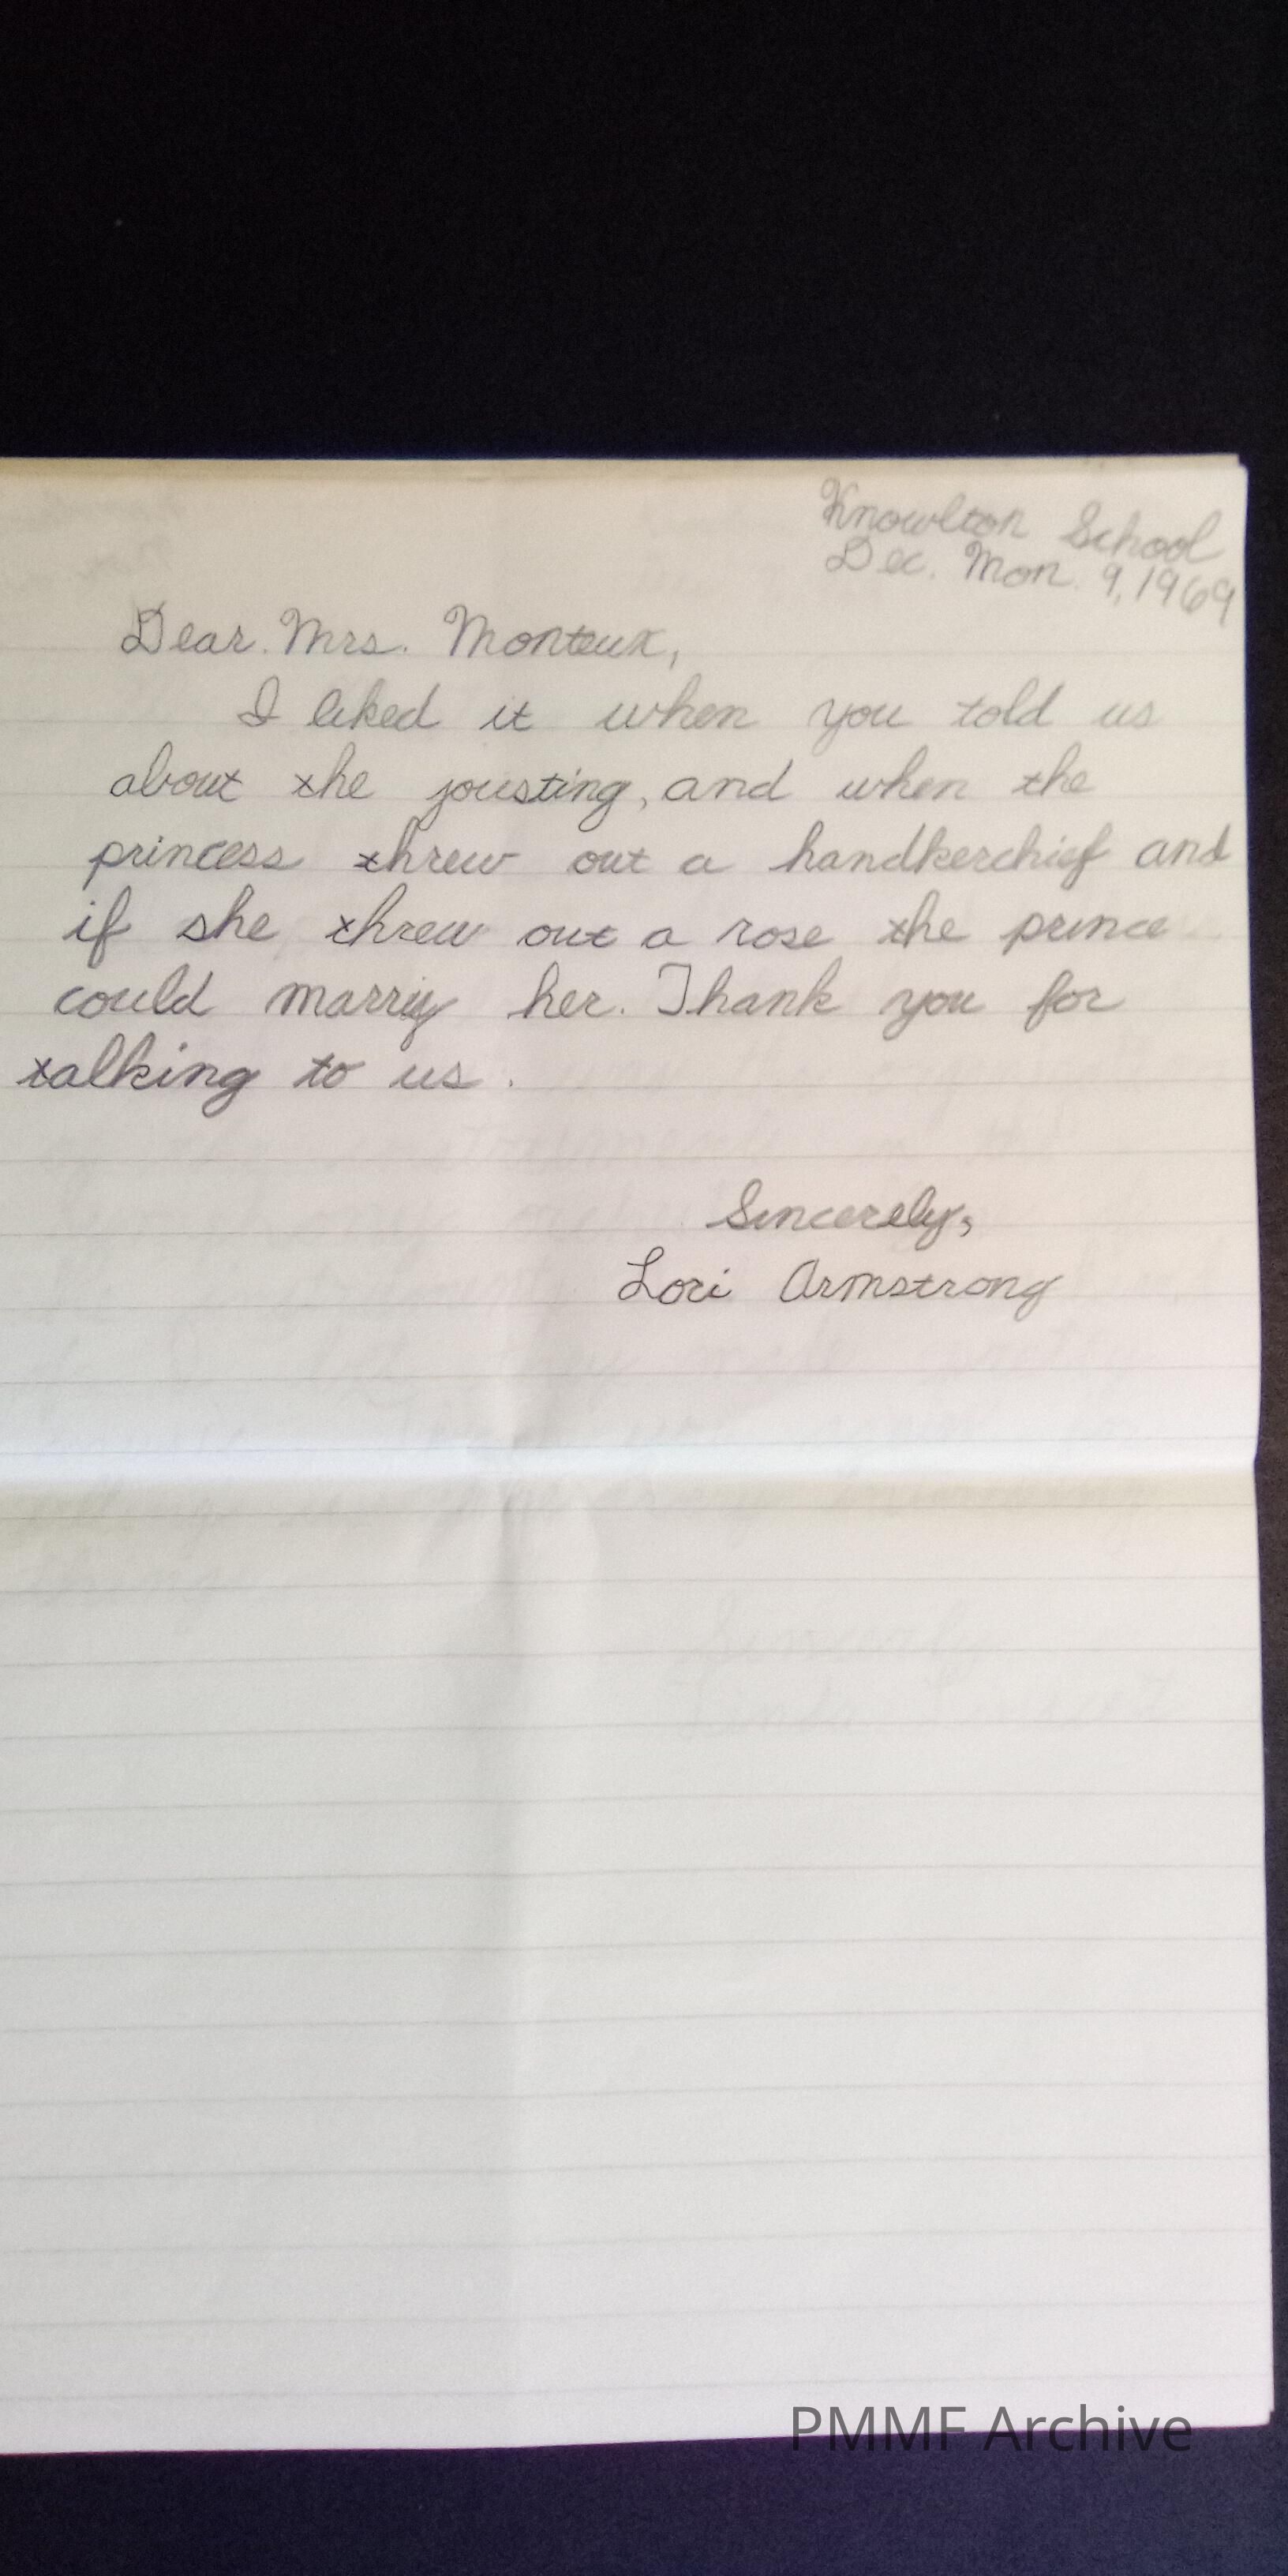 Knowlton School
Dec. Mon. 9, 1969
Dear Mrs. Monteux,
I liked it when you told us
about the jousting, and when the
princess threw out a handkerchief and
if she threw out a rose the prince
could marry her. Thank you for
talking to us.
Sincerely,
Lori Armstrong
PMMF Archive